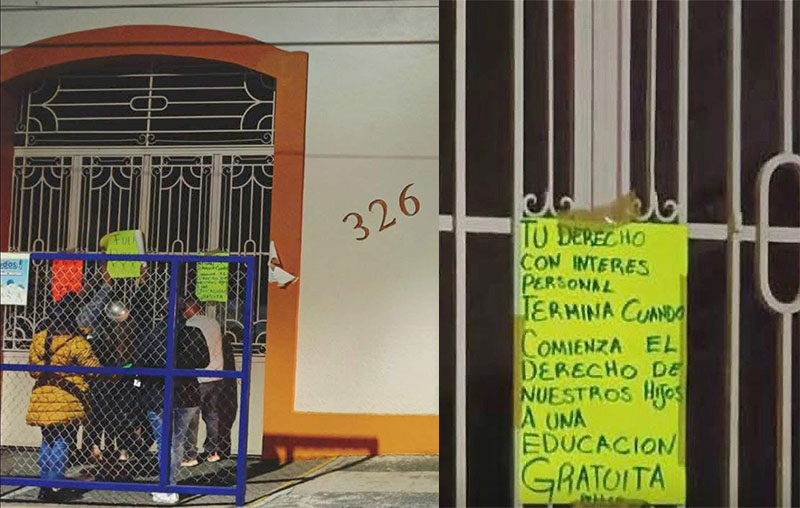 326
FUE
YA
TU DERECHO
CON INTERES
PERSONAL
TERMINA CUANDO
COMIENZA EL
DERECHO DE
NUESTROS HIJOS
A UNA
EDUCACION
GRATUITA